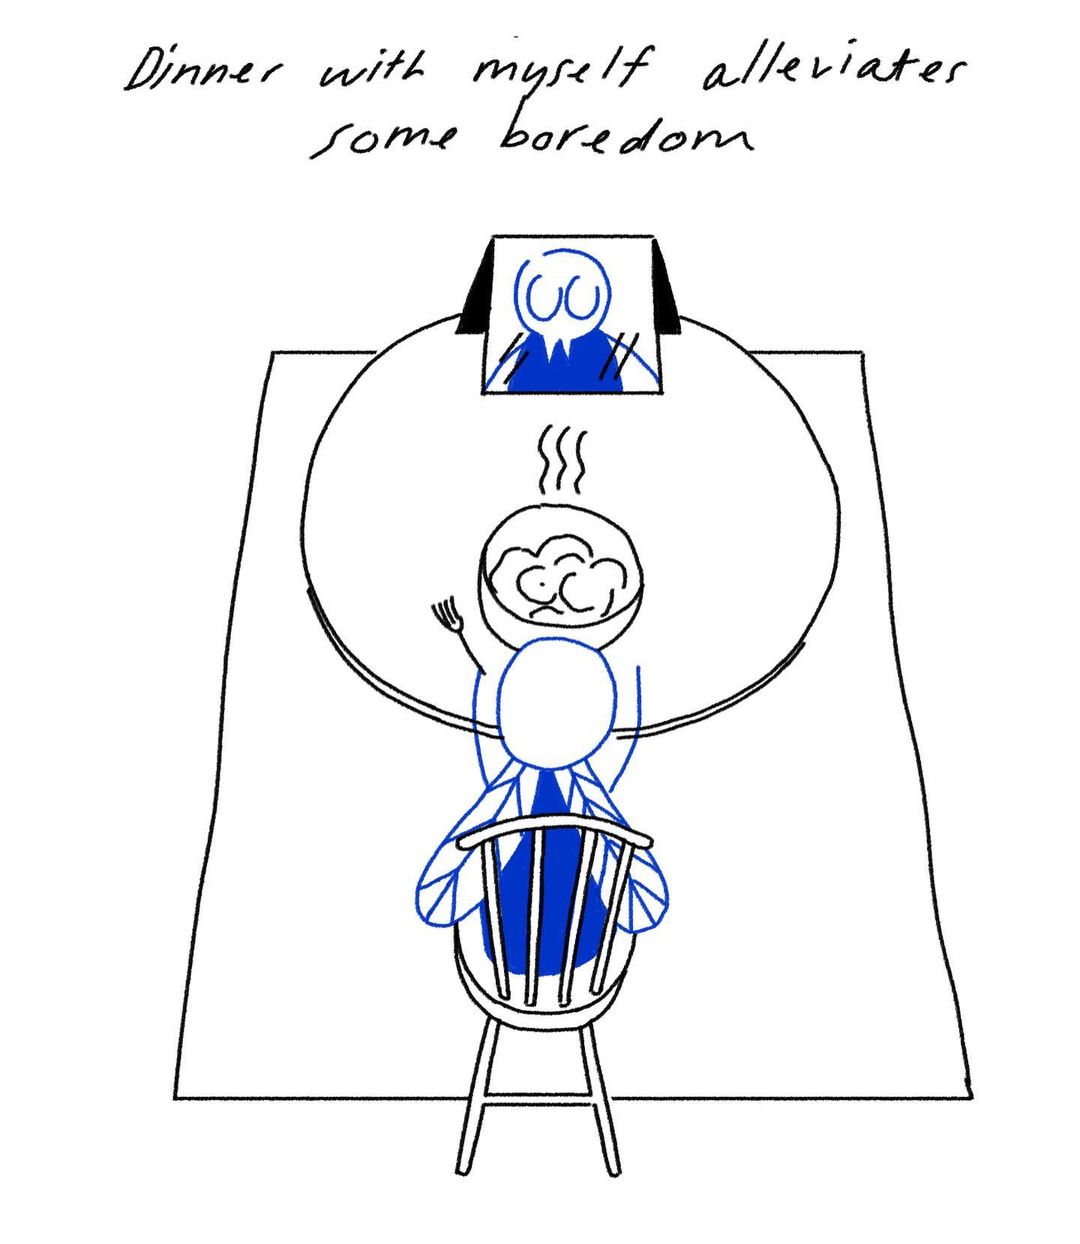 Dinner with myself alleviates
some boredom